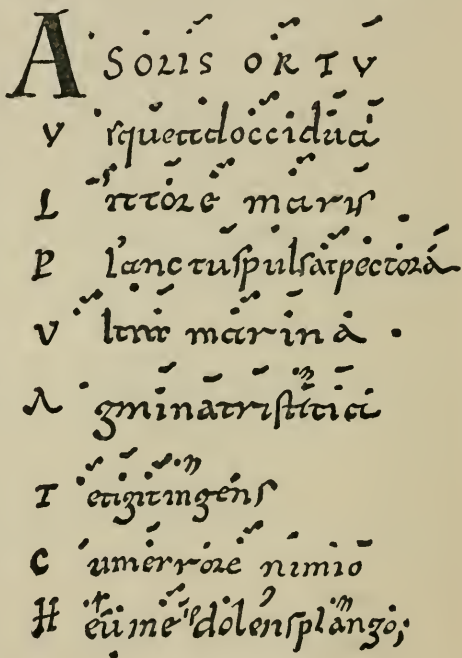 A SOLIS ORTV
V squeadoccidua
L ittore maris
P lanctuspulsatpectora
V ltra marina .
A gminatristitia
T etigitingens
C umerrore nimio
H eume dolensplango;